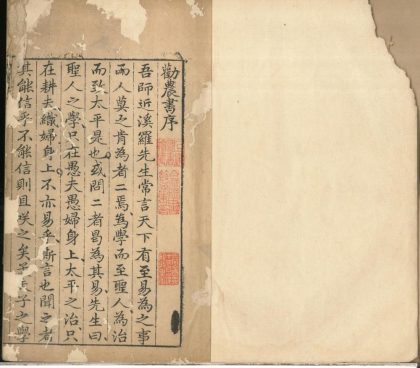 勸農書序
吾師近溪羅先生常言天下有至易為之事
而人莫之肯為者二焉為學而至聖人為治
而致太平是也或問二者曷為其易先生曰
聖人之學只在愚夫愚婦身上太平之治只
在耕夫織婦身上不亦易乎斯言也聞之者
其能信乎不能信則且咲之矣孟子之學